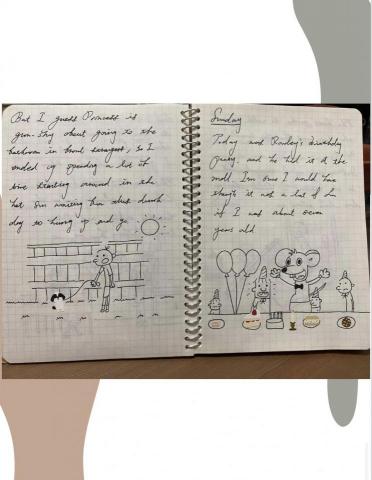 But I guess Princess is
gun-shy about going to the
bathroom in front strangers, so I
ended up spending a lot of
time standing around in the
hot sun waiting for that dumb
dog to hurry up and go
Sunday
Today was Rowley's Birthday
party, and he had it at the
mall. I'm sure I would have
thought it was a lot of fun
if I was about seven
years old